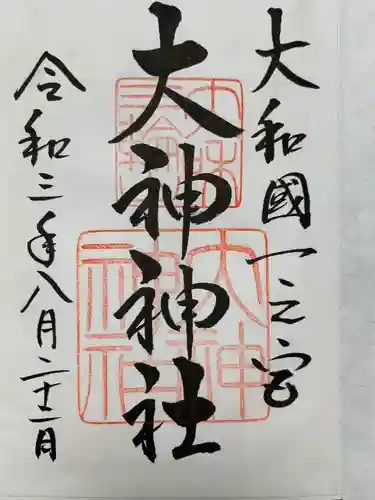 大和國一之宮
大神神社
令和三年八月二十二日
大神
神社